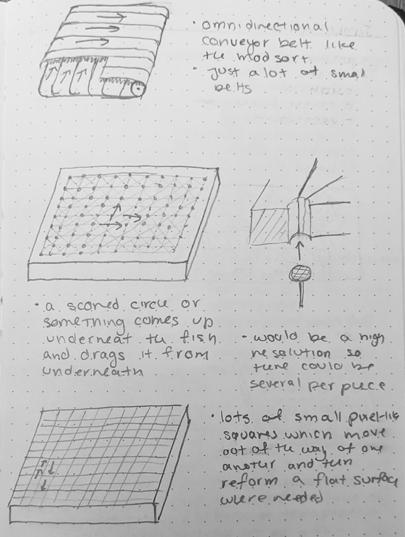 • omnidirectional
conveyor belt like
the modsort.
• just a lot of small
belts
• a scored circle or
something comes up
underneath the fish
and drags it from
underneath
• would be a high
resolution so
there could be
several per piece.
• lots of small pixel-like
squares which move
out of the way of one
another and then
reform a flat surface
where needed